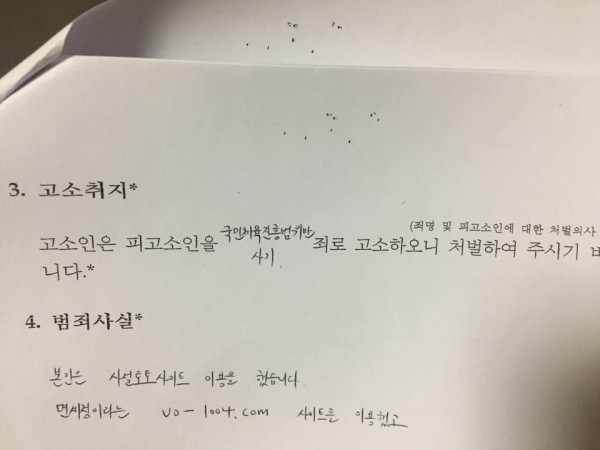 3. 고소취지*
(죄명 및 피고소인에 대한 처벌의사
고소인은 피고소인을 국민체육진흥법위반 죄로 고소하오니 처벌하여 주시기 바
사기
니다.*
4. 범죄사실*
본인은 사설토토사이트 이용을 했습니다.
면세점이라는 vo-1004.com 사이트를 이용했고